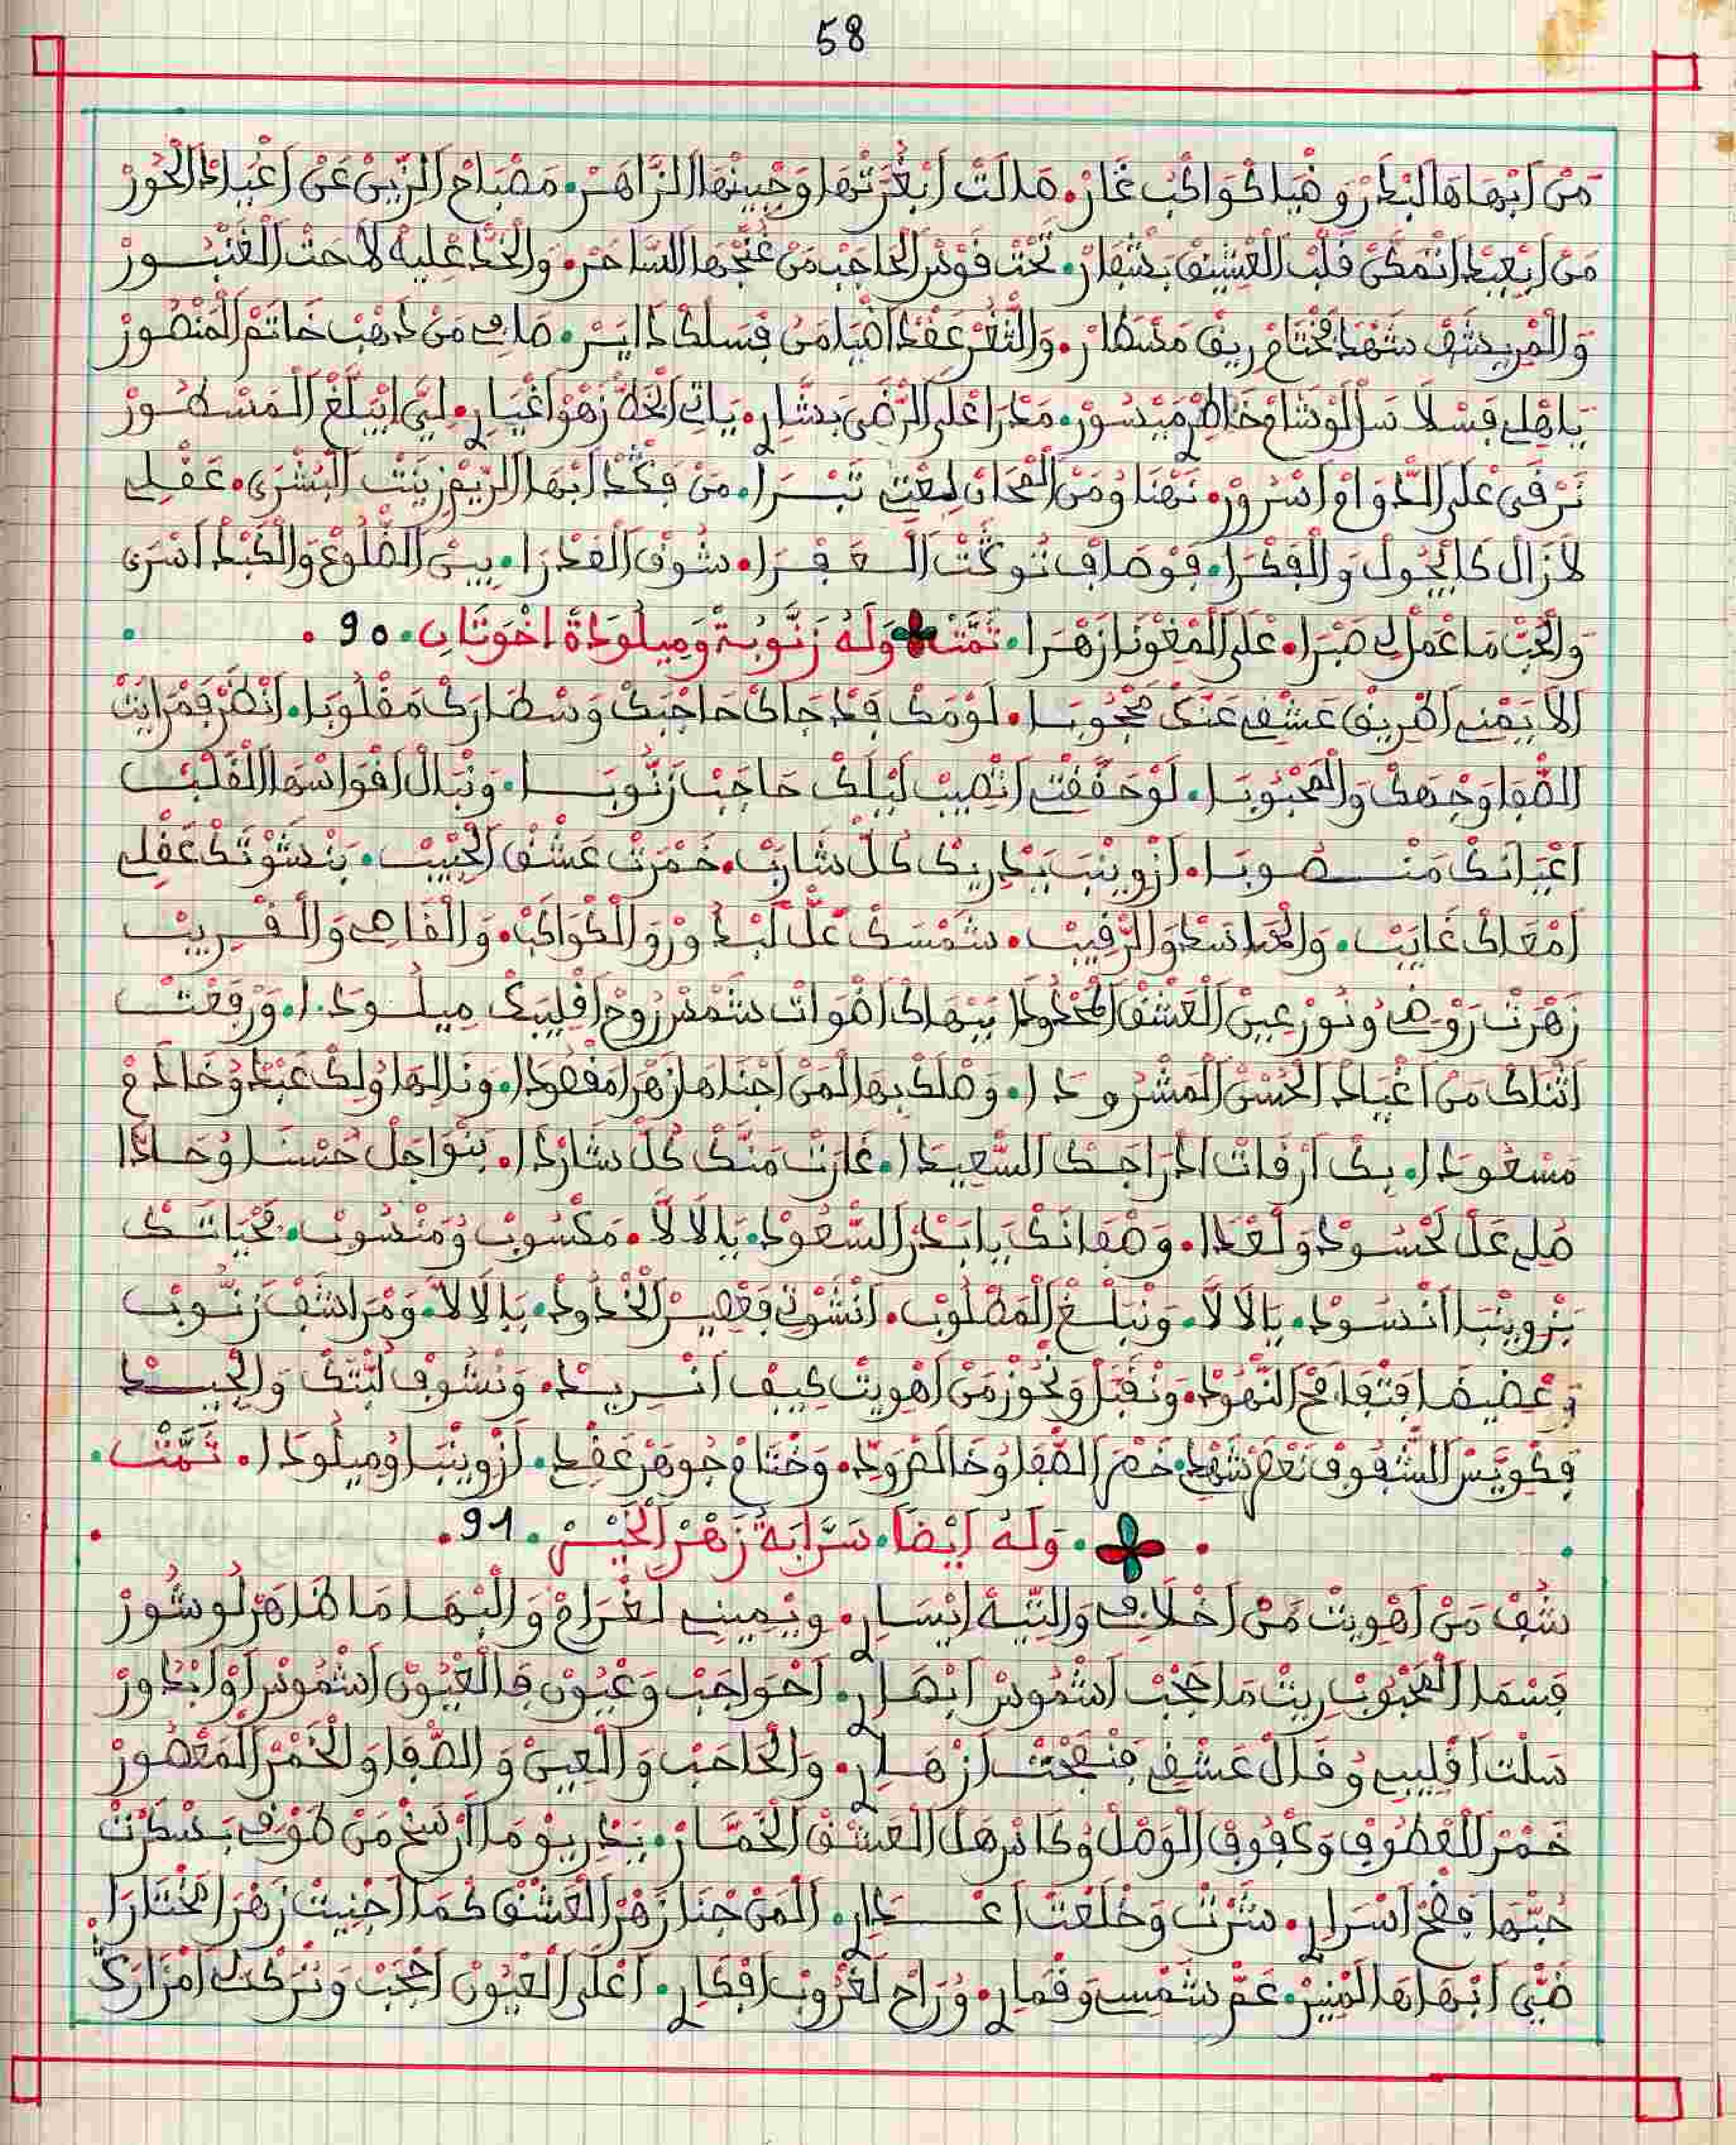 58
مَنْ اَبْهَاهَا الْبْدَرْ وضْيَا كْوَاكْبْ غَارْ. مَالَتْ اَبْغُرَّتْهَا وَجْبِينْهَا الزَّاهَرْ. مَصْبَاحْ الزِّينْ عَنْ اَغْيَادْ الْحُورْ
مَنْ اَبْعِيدْ اَتْمَكَّنْ قَلْبْ الْعْشِيقْ بَشْفَارْ. تَحْتْ قَوْسْ الْحَاجَبْ مَنْ غُنْجْهَا السَّاحَرْ. وَالْخَدّْ اعْلِيهْ لاَحَتْ الْعَنْبُورْ
وَالْمْرِيشَّفْ شَهْدْ مَخْتَامْ رِيقْ مَسْطَارْ. وَالثّْغَرْ عَقْدْ اضْيَا مَنْ فْسَلْكْ دَايَرْ. صَافِي مَنْ ذَهْبْ خَاتَمْ الْمَنْصُورْ
يَاهْلِي فَسْلاَسَلْ لَوْشَامْ خَاطْرِ مَيْسُورْ. مَدْرَا عْلَى الرّْضَى بَشَّارِ. يَاتِي الْخَدّْ زَهْوْ اَغْيَارِ. لِيَّ اِيبَلَّغْ الْمَسْطُورْ
نَرْقَى عْلَى الدّْوَامْ اَسْرُورْ. نَهْنَا وُمَنْ الْمْحَانْ لِيعْتِي تَبْرَا. مَنْ فَقْدْ اَبْهَا الرِّيمْ زِينَتْ الْبُشْرَى. عَقْلِي
لاَزَالْ كَايْجُولْ وَالْفِكْرَا. فَوْصَافْ نُوكْتْ الْعَفْرَا. شُوقْ الْعَدْرَا. بِينْ الضّْلُوعْ وَالْكَبْدْ اَسْرَى
وَالْحُبّْ مَاعْمَلْ لِي صَبْرَا. عْلَى الْمَغْنُونَا زَهْرَا. تَمَّتْ وَلَهُ زَنُّوبَةْ وَمِيلُودَةْ اخْوَتَانِ. 90.
اَلاَيَمْنِي اطْرِيقْ عَشْقِي عَنَّكْ مَحْجُوبَا. لَوْمَكْ قَدْ جَاكْ حَاجْبَكْ وَسْطَارَكْ مَقْلُوبَا. اَنْظَرْ قَمْرَايَتْ
الصّْفَا وَجْهَكْ وَالْمَحْبُوبَا. لَوْحَقَّقْتْ اَتْصِيبْ لَيْلَكْ حَاجَبْ زَنُّوبَا. وَنْبَالْ اَقْوَاسْهَا الْقَلْبْ
اَعْيَانَكْ مَنْصُوبَا. اَزْوِينَبْ بَيْدِيكْ كُلّْ شَارَبْ. خَمْرَتْ عَشْقْ الْحْبِيبْ. بَنْشَوْتَكْ عَقْلِي
اَمْعَاكْ غَايَبْ. وَالْحَاسَدْ وَالرّْقِيبْ. شَمْسَكْ عَلْ لَبْدُورْ وَالْكْوَاكَبْ. وَالْقَاصِي وَالْقْرِيبْ
زَهْرَتْ رَوْضِي وُنُورْ عِينْ الْعَشْقْ الْمَحْدُودَا بَبْهَاكْ اضْوَاتْ شَمْسْ رُوحْ اَقْلِيبَكْ مِيلُودَا. وَرْفَعْتْ
اَثْنَاكْ مَنْ اَغْيَادْ الْحُسْنْ الْمَشْرُودَا. وَصْلَكْ بِهَا لْمَنْ اَجْنَاهَا زَهْرَا مَقْصُودَا. وَنَالِهَا وُلِكْ عَبْدْ وُخَادَمْ
مَسْعُودَا. بِكْ اَرْفَاتْ ادْرَاجَكْ السّْعِيدَا. غَارَتْ مَنَّكْ كُلّْ شَارْدَا. بَنْوَاجَلْ حُسْنَا وُحَادَّا
صْلِي عَلْ لَحْسُودْ وَلْعْدَا. وَصْفَاتَكْ يَا بَدْرْ السّْعُودْ. يَالاَلاَّ. مَكْسُوبْ وُمَنْسُوبْ. مَحْيَاتَكْ
بَزْوِينْبَا اَنْسُودْ. يَالاَلاَّ. وَنْبَلَّغْ الْمَطْلُوبْ. اَنْشُوتِي فَعْصِيرْ الْخْدُودْ. يَالاَلاَّ. وَمْرَاشَفْ زَنُّوبْ
وَغْضِيضَا فَتْفَافَحْ النّْهُودْ. وَنْقَبَّلْ وَنْحُوزْ مَنْ اَهْوِيتْ كِيفْ اَنْرِيدْ. وَنْشُوفْ لَبَّتَكْ وَالْجِيدْ
فَكْوِيَّسْ الشّْفُوفْ نَعَمْ شَهْدْ. خَمْرْ الصّْفَا وُخَالْ فْرُودْ. وَخْتَامْ جُوهَرْ عَقْدْ. اَزْوِينْبَا وُمِيلُودَا. تَمَّتْ.
وَلَهُ اَيْضًا. سَرَّابَةُ زَهْرْ الْجَيْشْ. 91.
شُفْ مَنْ اَهْوِيتْ مَنْ اَخْلاَقِ وَالتِّيهْ اِيْسَارِ. وِيْمِينِي لَغْرَامْ وَالْبْهَا مَا ظَاهَرْ لُو شُورْ
فَسْمَا الْمَحْبُوبْ رِيتْ مَا حَجْبْ اَشْمُوسْ اَبْصَارِ. اَحْوَاجَبْ وَعْيُونْ فَالْعْيُونْ اَشْمُوسْ اَوْ اَبْدُورْ
سَلْتْ اَقْلِيبِي وُقَالْ عَشْقِي فَنْفَحْتْ اَزْهَارِ. وَالْحَاجَبْ وَالْعِينْ وَالصّْفَا وَالْخَمْرْ الْمَعْصُورْ
خَمْرْ الْعْطُوفْ وَكْفُوفْ الْوَصْلْ وُكَاسْ هَلْ الْعَشْقْ الْخَمَّارْ. بَيْدِ يُومْ مَا اَرْسَخْ مَنْ طَوْقِ بَسْكَرْتْ
حُبّْهَا فَضْحْ اَسْرَارِ. سَتْرْتْ وَخْلَعْتْ اَعْدَارِ. الْمَنْ جْنَا زَهْرْ الْعَشْقْ كْمَا اَجْنِيتْ زَهْرَا مَخْتَارَا
ضَيّْ اَبْهَاهَا الْمْنِيرْ. عَمّْ شَمْسِي وَقْمَارِ. وُرَاحْ لَغْرُوبْ اَفْكَارِ. اَعْلَى الْعْيُونْ اَحْجَبْ وَنْتَرْكَتْ اَمْزَارَكْ